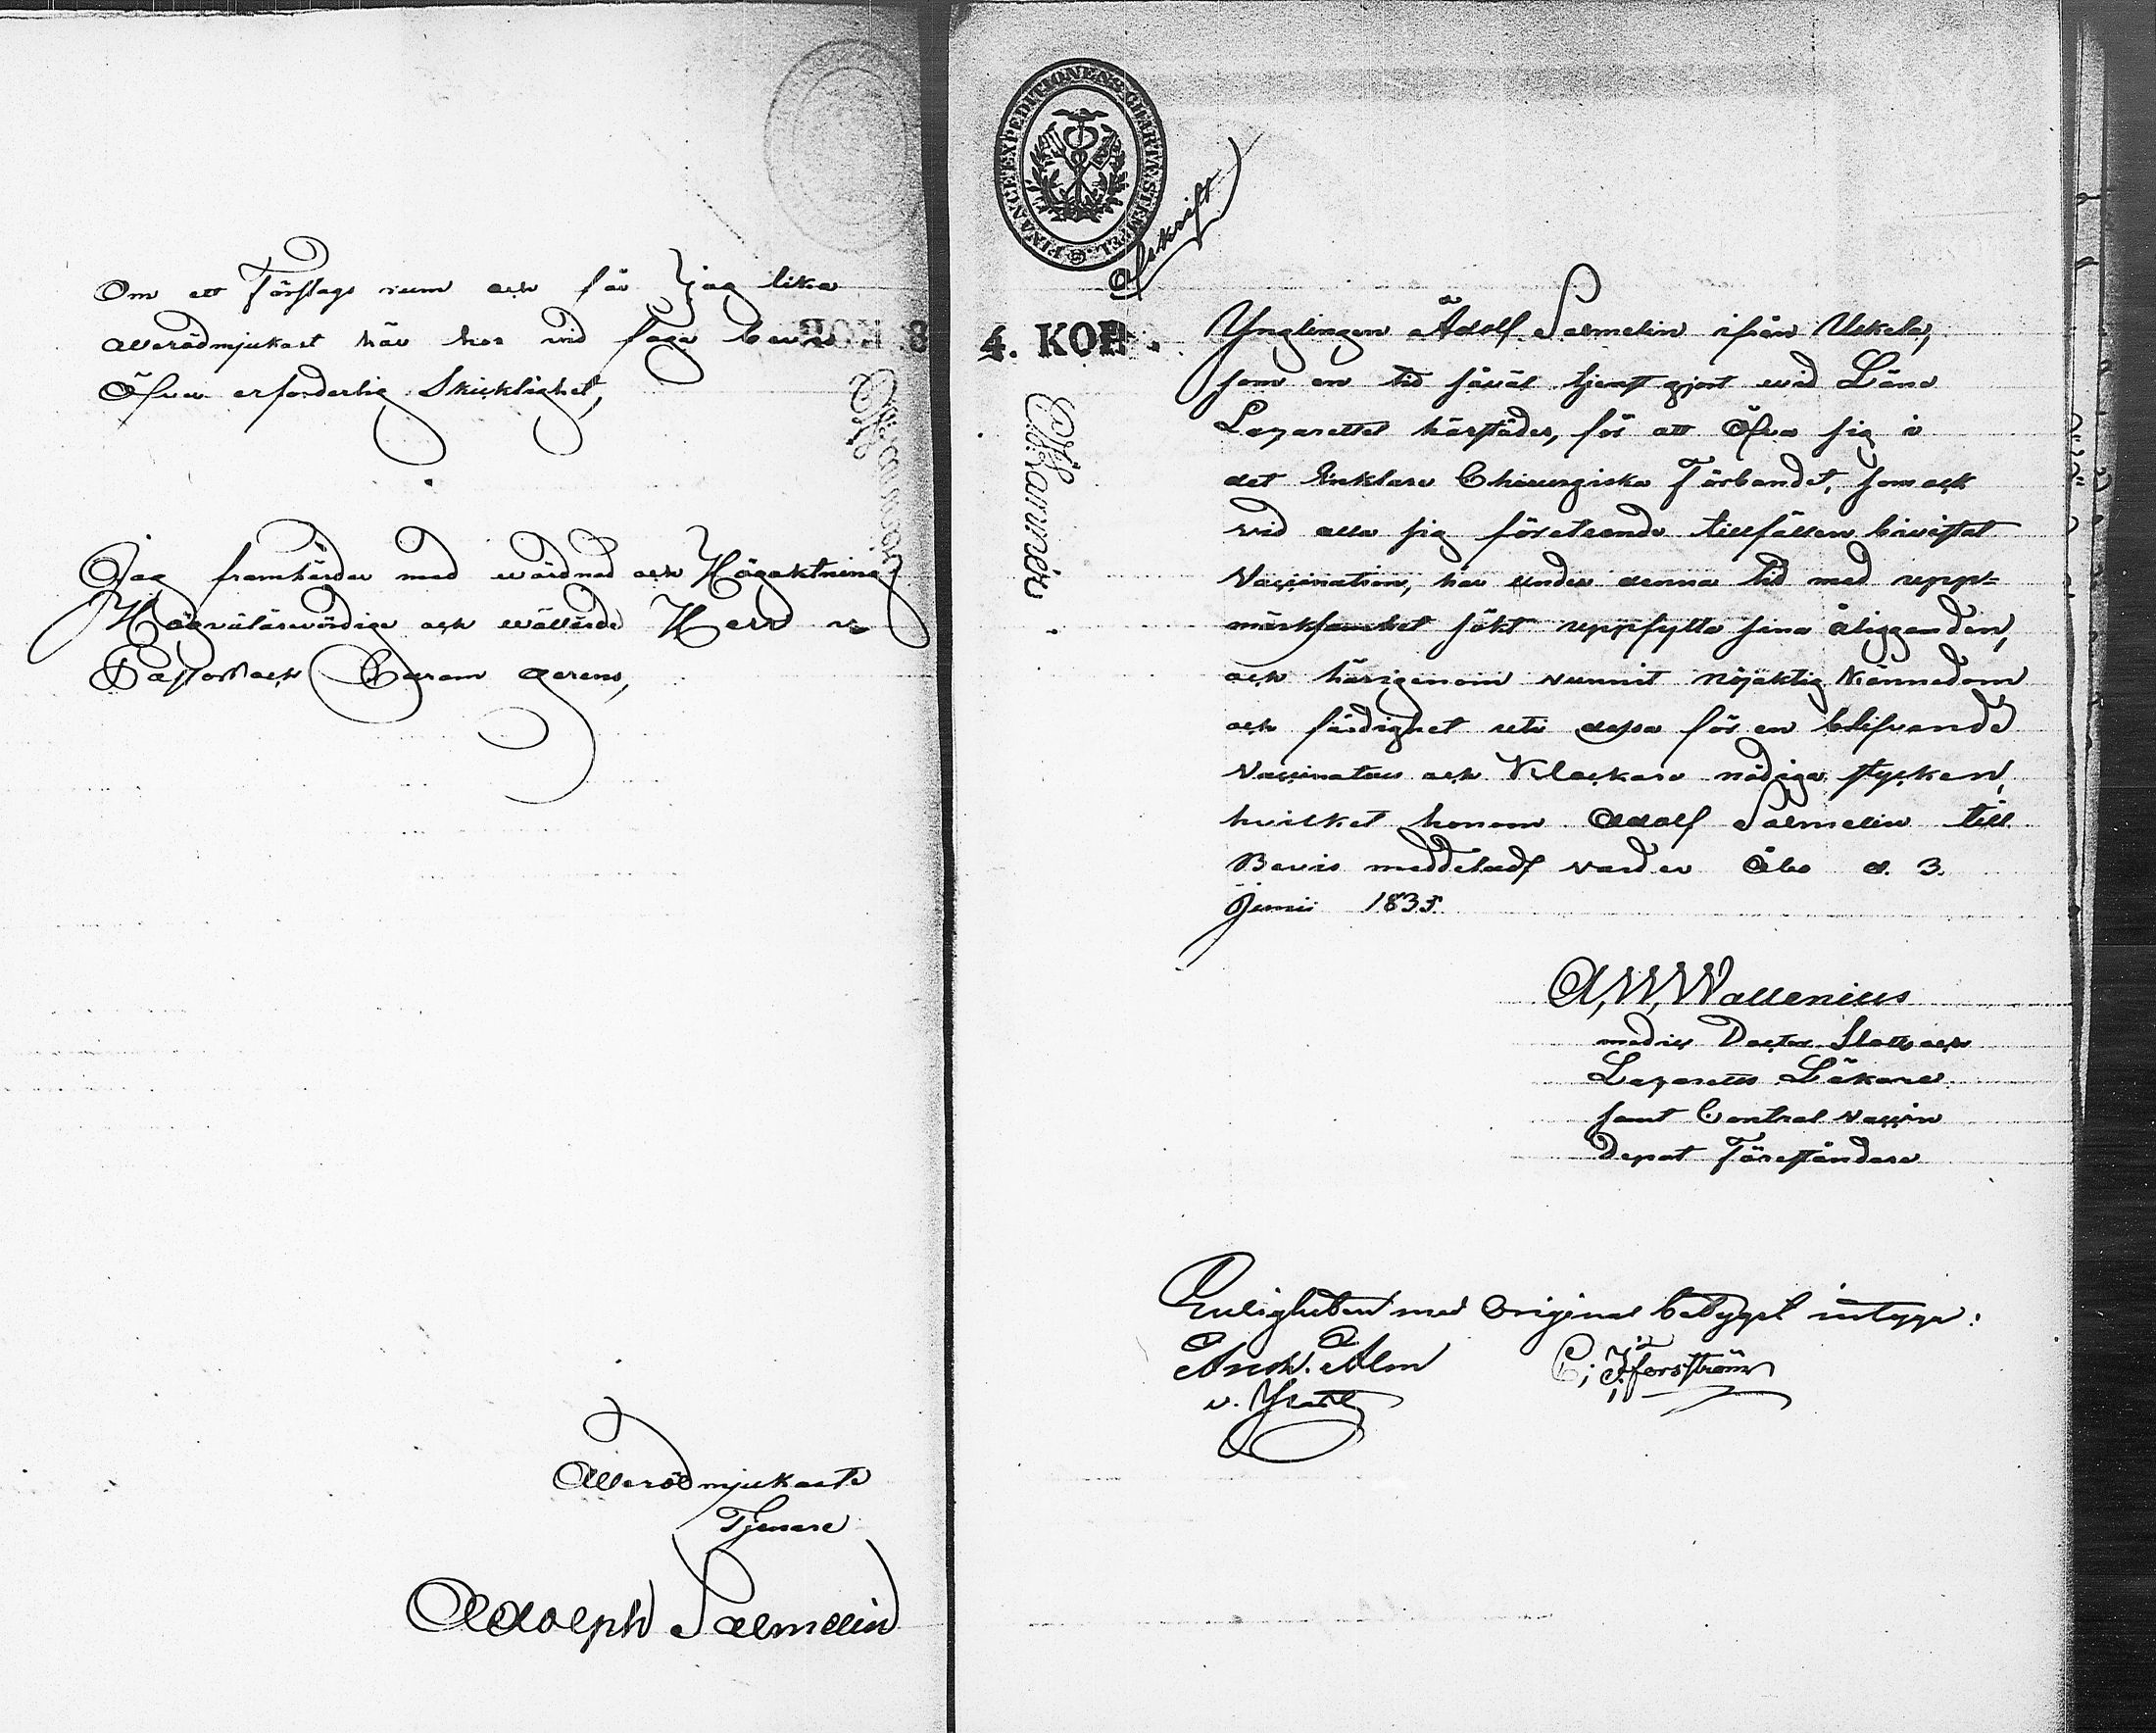 Om ett Förslags rum och får jag lika
allerödmjukast här hos vid foga bevis
Öfver erforderlig Skicklighet,
Jag framhärdar med wårdnad och Högaktning
Högvälärevördige och wällärde Herr
Pastor och Curam gerens,
Allerödmjukaste
Tjenare
Adolph Salmelin
FINANCE EXPEDITIONENS CHARTÆ STEMPEL
Afskrift
4. KOP.
Ynglingen Adolf Salmelin ifrån Uskela,
som en tid såväl tjenstgjort wid Läns
Lazarettet härstädes, för att Öfva sig i
det Enklare Chirurgiska Förbandet, som ock
vid alla sig företeende tillfällen bivistat
Vaccination, har under denna tid med upp-
märksamhet sökt uppfylla sina åligganden,
och härigenom vunnit nöjaktig Kännedom
och färdighet uti dessa för en blifvande
Vaccinateur och Klockare nödiga stycken,
hvilket honom Adolf Salmelin till
Bevis meddeladt varder Åbo d. 3.
Junii 1835.
A, W, Wallenius
medic Doctor Slotts och
Lazaretts Läkare
samt Central Vaccin
Depot Föreståndare
Enligheten med Original betyget intyga:
And. Alm C; J. forsström